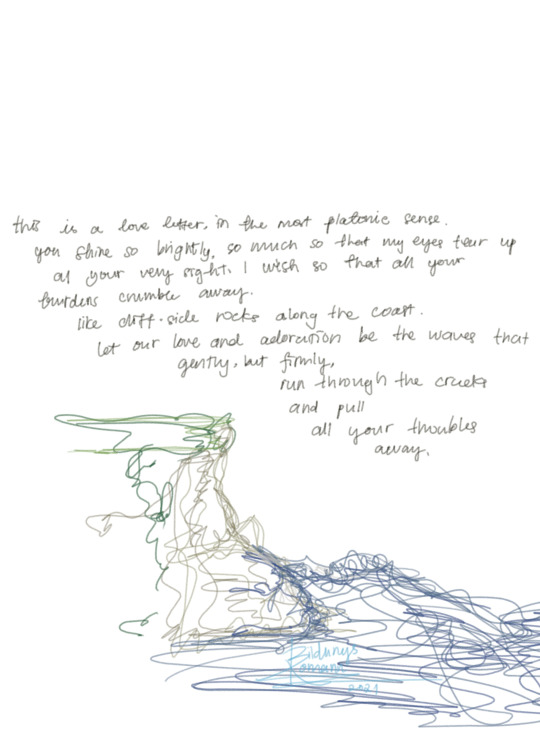 this is a love letter, in the most platonic sense.
you shine so brightly, so much so that my eyes tear up
at your very sight. I wish so that all your
burdens crumble away.
like cliff-side rocks along the coast.
let our love and adoration be the waves that
gently, but firmly,
run through the cracks
and pull
all your troubles
away.
Bildungs
Romans
2021